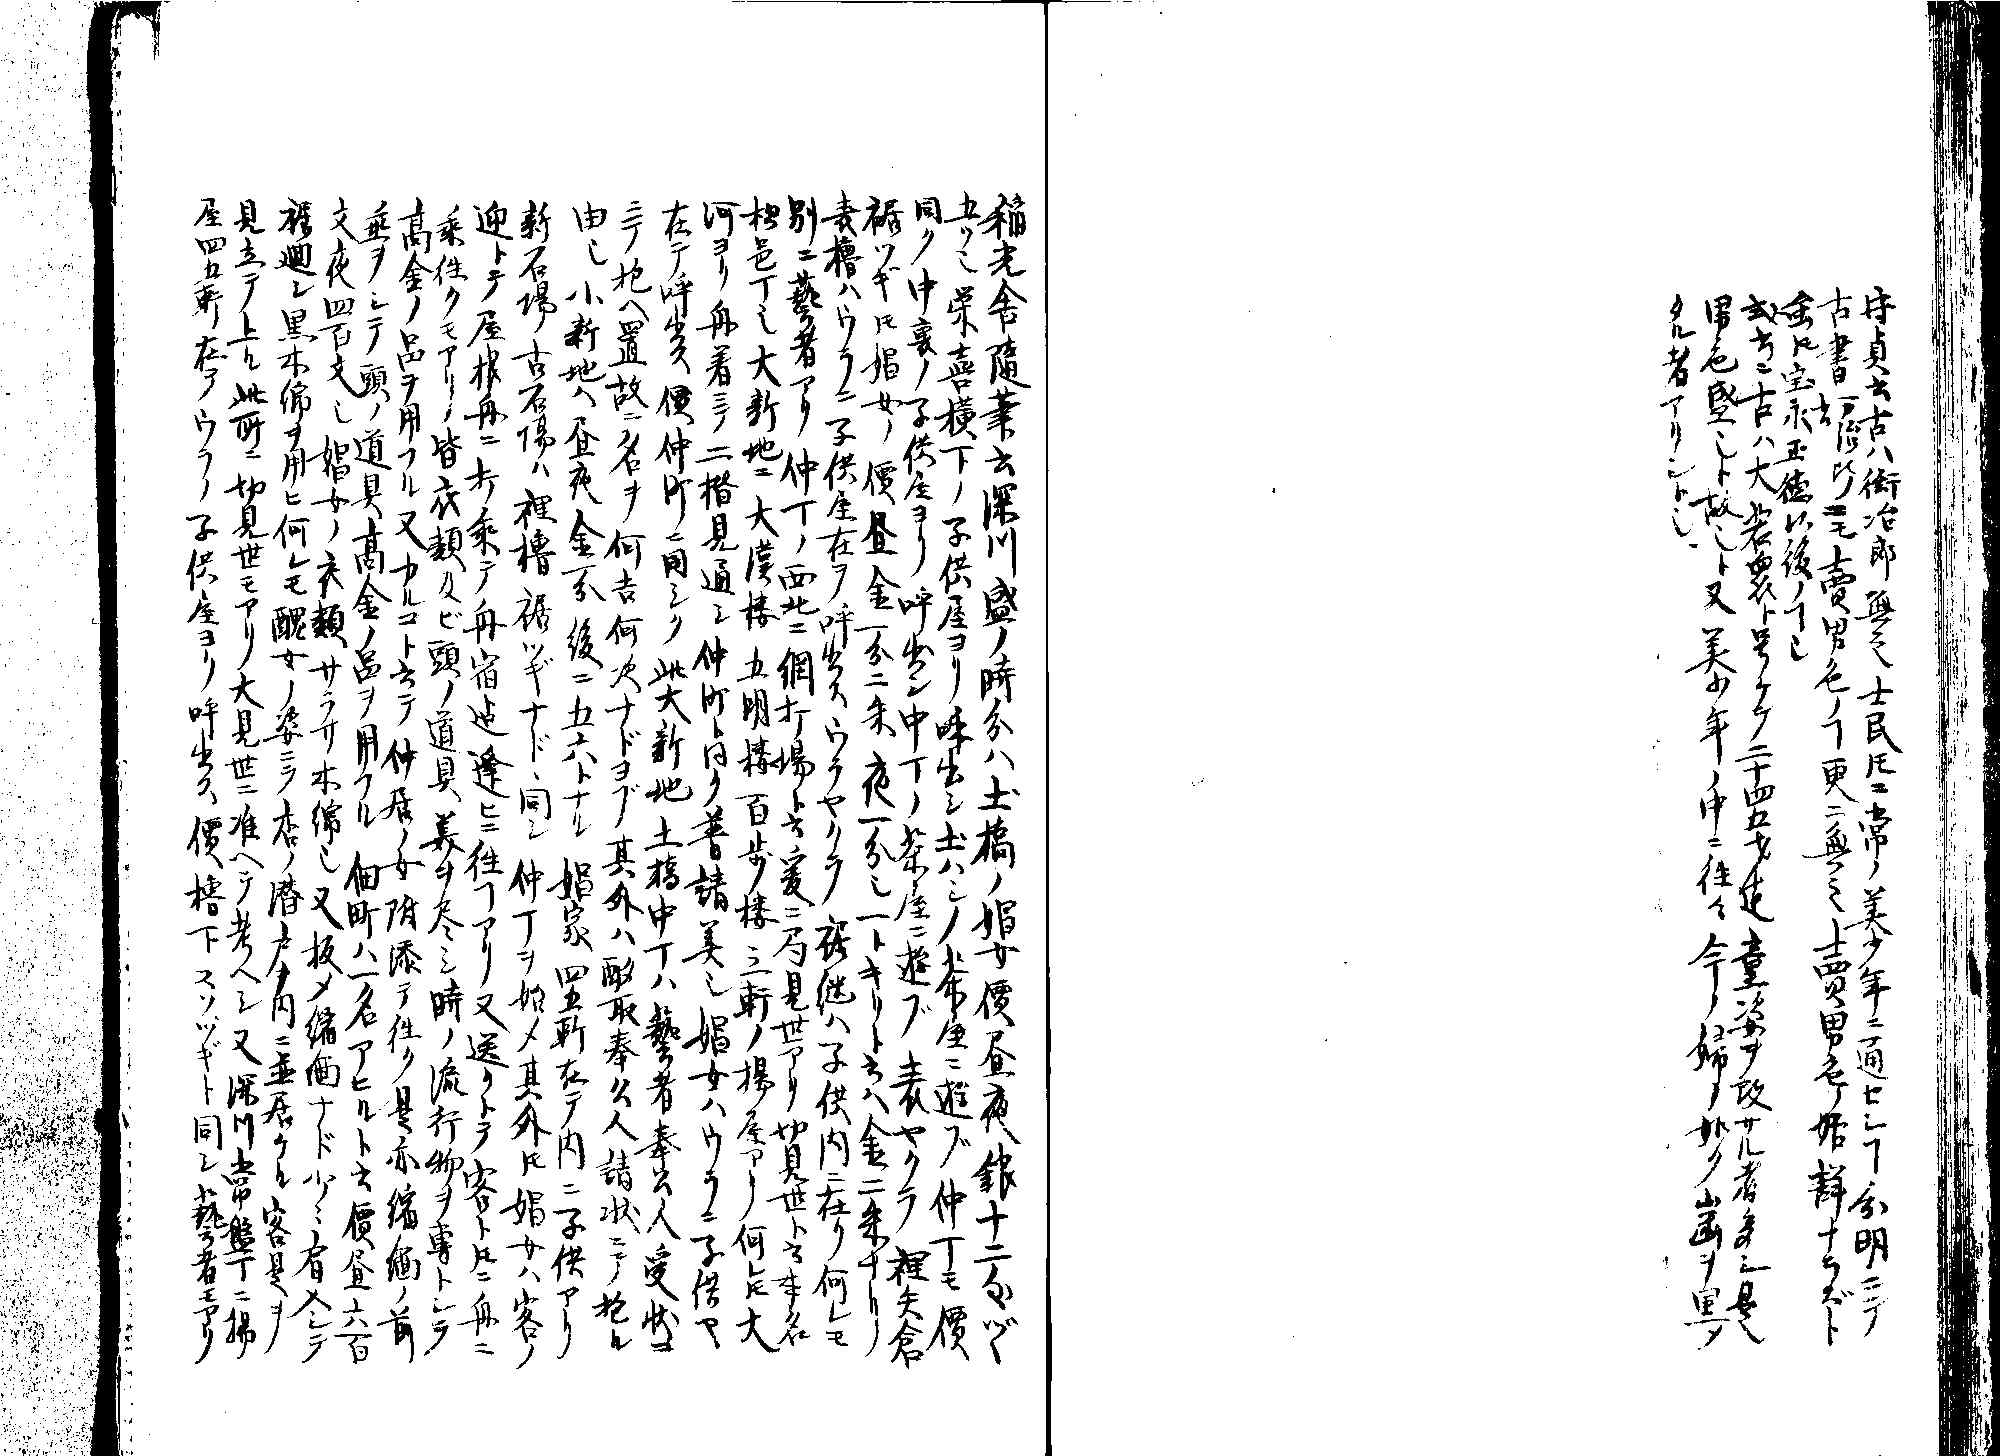 守貞云古ハ街冶郎無之士民トモニ常ノ美少年ニ通ゼシ丁分明ニテ
古書ニモ賣男色ノ丁更ニ無之賣男色ノ始詳ナラズト
金トモ宝永正徳以後ノ丁也
或書ニ古ハ大若衆ト号ケテ二十四五才迄童姿ヲ改サル者多シ是
男色盛ンナル故也ト又美少年ノ中ニ往々今ノ婦ノ如ク歯ヲ黒メ
タル者アリシト也
稲光舎随筆云深川盛ノ時分ハ土橋ノ娼女價昼夜銀十二匁ヅヽ
五ツ也栄喜横下ノ子供屋ヨリ呼出シ土ハシノ茶屋ニ遊ブ仲丁モ價
同ク中裏ノ子供屋ヨリ呼出シ中丁ノ茶屋ニ遊ブ表ヤクラ裡矢倉
裾ツギトモ娼女ノ價昼金一分二朱夜一分也一トキリト云ハ金二朱ナリ
表櫓ハウラニ子供屋在ヲ呼出スウラヤクラ裾継ハ子供内ニ在リ何レモ
別ニ藝者アリ仲丁ノ西北ニ網打場ト云爰ニ乃見世アリ切見世ト云本名
松邑丁也大新地ニ大漢楼五明楼百歩楼三軒ノ揚屋アリ何レモ大
河ヨリ舟着ニテ二楷見通シ仲町ト同ク普請美也娼女ハウラニ子供ヤ
在テ呼出ス價仲町ニ同シク此大新地土橋中丁ハ藝者奉公人受状
ニテ抱ヘ置故ニ名ヲ何吉何次ナドヨブ其外ハ酌取奉公人請状ニテ抱ル
由也小新地ハ昼夜金一分後ニ五六トナル娼家四五軒在テ内ニ子供アリ
新石場古石場ハ裡櫓裾ツギナドヽ同シ仲丁ヲ始メ其外トモ娼女ハ客ノ
迎トテ屋根舟ニ打乗テ舟宿迄逢ヒニ往丁アリ又送クトテ客トトモニ舟ニ
乗往クモアリノ皆衣類及ビ頭ノ道具美ヲ尽シ時ノ流行物ヲ專トシテ
高金ノ品ヲ用フル又カルコト云テ仲居ノ女附添テ往ク是亦縮緬ノ前
垂ヲシテ頭ノ道具高金ノ品ヲ用フル佃町ハ一名アヒルト云價昼六百
文夜四百文也娼女ノ衣類サラサ木綿也又板メ縮緬ナド少々宥入シテ
裾廻シ黒木綿ヲ用ヒ何レモ醜女ノ姿ニテ店ノ潜戸内ニ並居タル客是ヲ
見立テ上ル此所ニ切見世モアリ大見世ニ准ヘテ考ヘシ又深川常盤丁ニ揚
屋四五軒在アウラノ子供屋ヨリ呼出ス價櫓下スソツギト同シ藝者モアリ